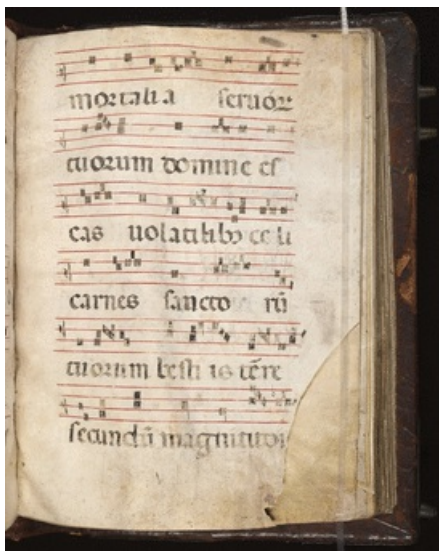 mortalia seruoꝝ
tuorum domine es
cas uolatilibꝯ celi
carnes sancto rū
tuorum besti is terre
secundū magnitudi